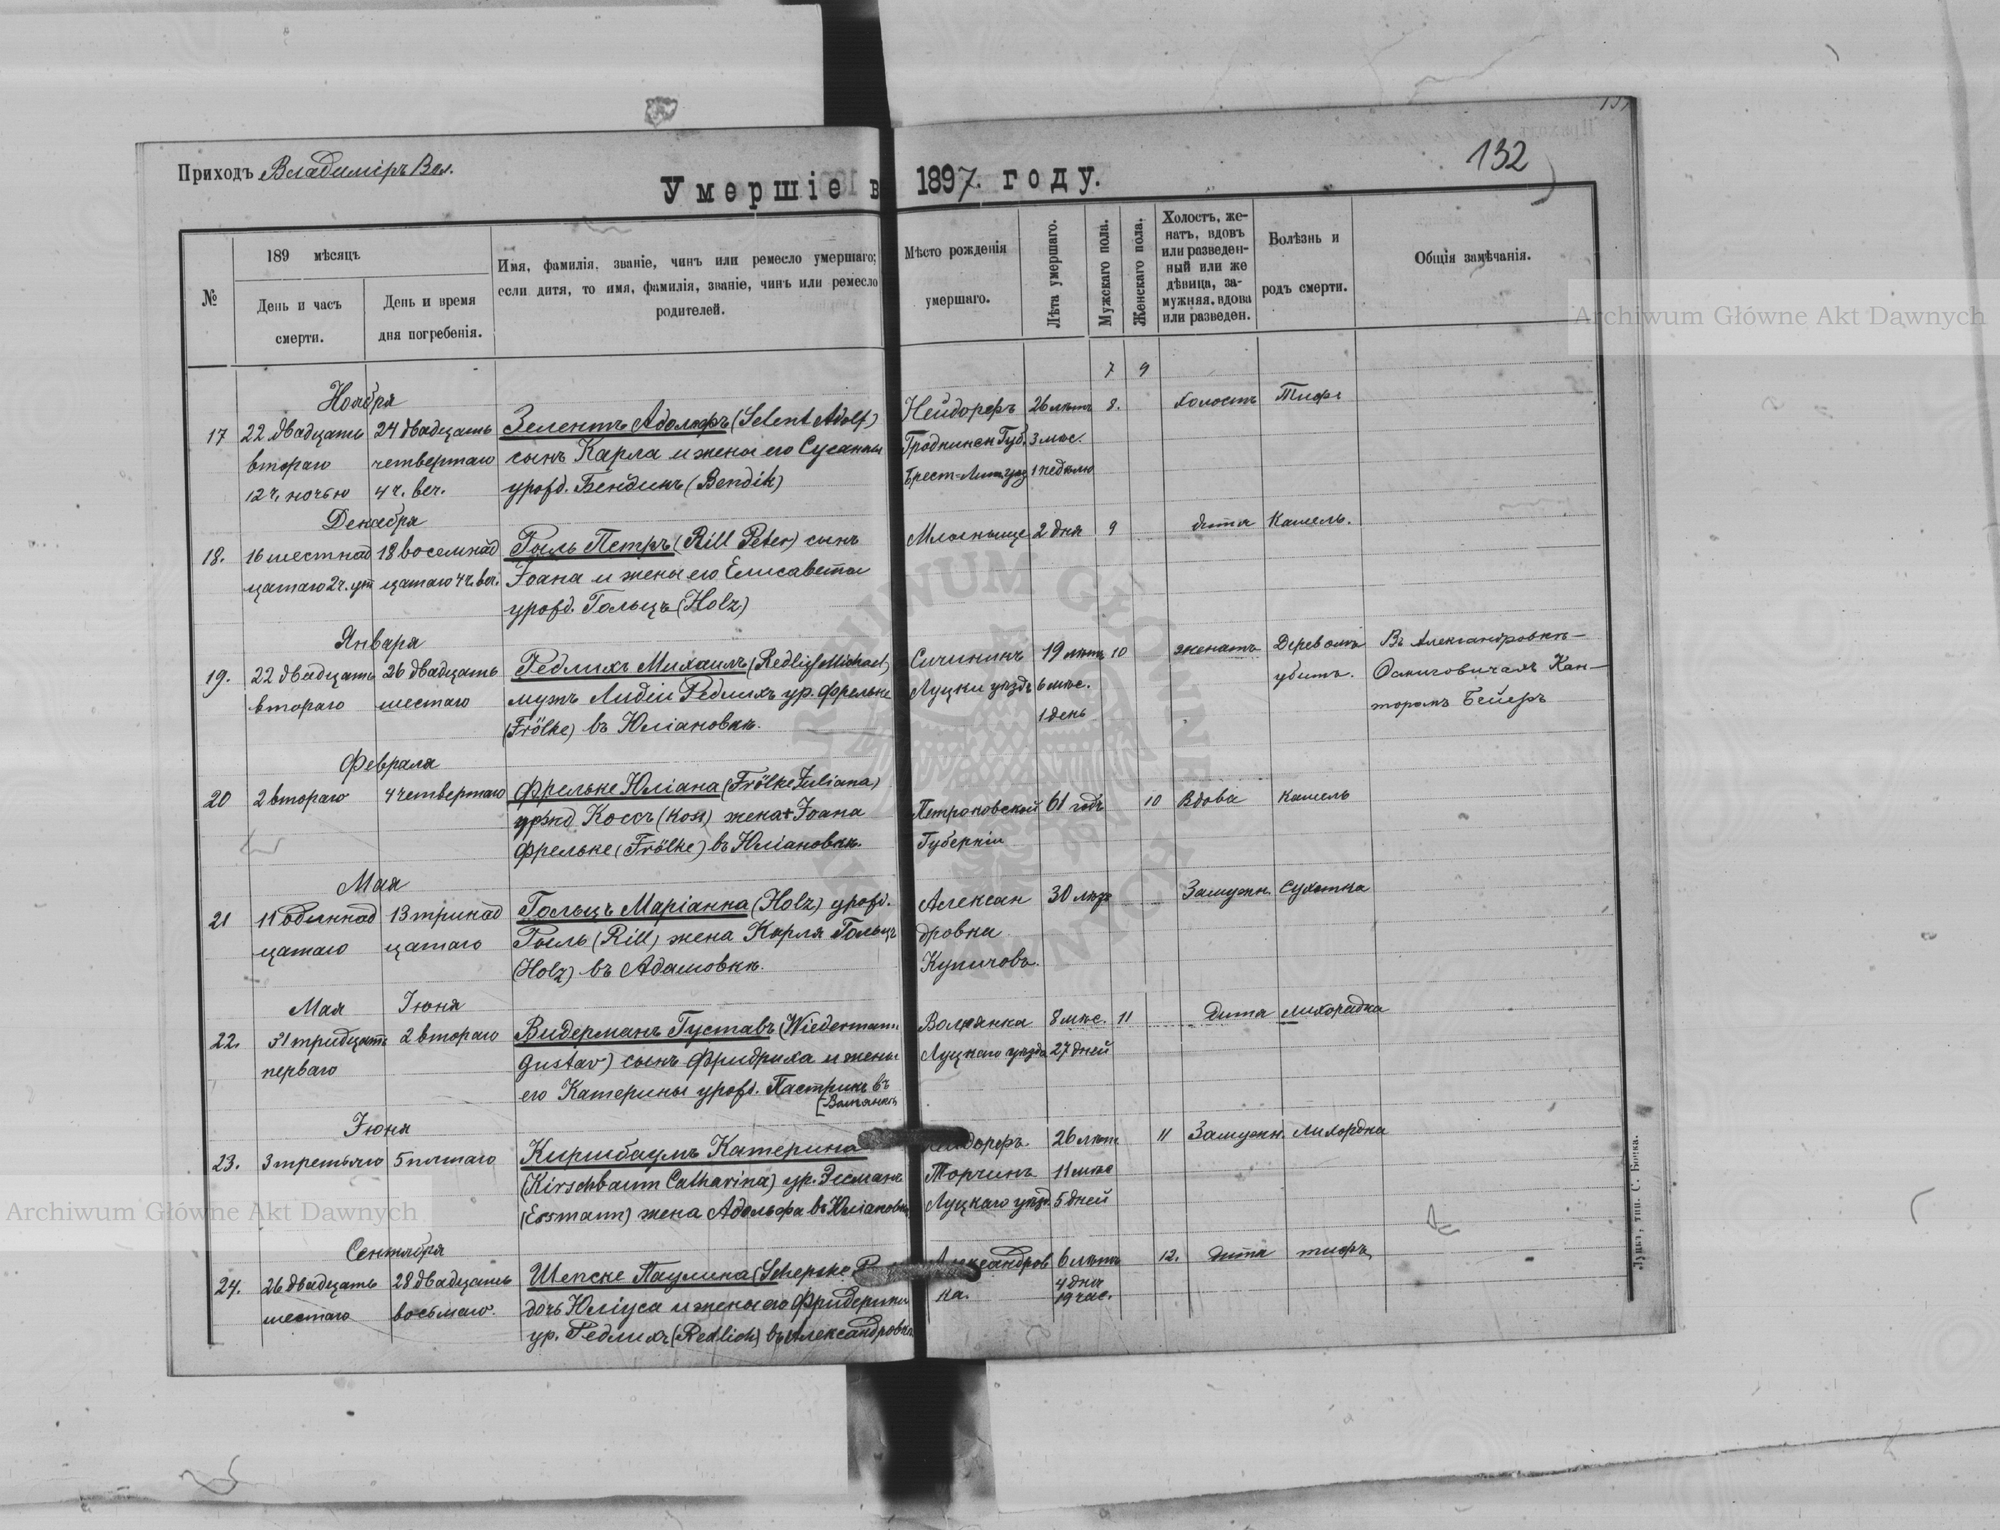 132
Приходъ Владимiръ Вол.
Умершіе в 1897. году.
№
189 мѣсяцъ
День и часъ смерти.
День и время дня погребенія.
Имя, фамилія, званіе, чинъ или ремесло умершаго;
если дитя, то имя, фамилія, званіе, чинъ или ремесло
родителей.
Мѣсто рожденія
умершаго.
Лѣта умершаго.
Мужскаго пола.
Женскаго пола.
Холостъ, же-
натъ, вдовъ
или разведен-
ный или же
дѣвица, за-
мужняя, вдова
или разведен.
Болѣзнь и
родъ смерти.
Общія замѣчанія.
7 9
Ноября
17 22 двадцать 24 двадцать Зелентъ Адольфъ (Selent Adolf) Нейдорфъ 26 лѣтъ 8. холостъ Тифъ
втораго четвертаго сынъ Карла и жены его Сусанны Гроднинск Губ. 3 мѣс.
12 ч. ночью 4 ч. веч. урожд. Бендикъ (Bendik) Брест-Лит. уѣзд 1 недѣлю
Декабря
18. 16 шестнад 18 восемнад Рыль Петръ (Rill Peter) сынъ 2 дня 9 дитя Кашель.
цатаго 2 ч. ут цатаго 4 ч. веч. Iоана и жены его Елисаветы
урожд. Гольцъ (Holz)
Января
19. 22 двадцать 26 двадцать Редлихъ Михаилъ (Redlich Michael) 19 лѣтъ 10 женатъ Деревомъ Въ Александровкѣ-
втораго шестаго мужъ Лидіи Редлихъ ур. Фрельке Луцки уѣздъ 6 мѣс. убитъ. Кан-
(Frölke) въ Юліановкѣ. 1 день торомъ Бейеръ
Февраля
20 2 втораго 4 четвертаго Фрельке Юліана (Frölke Juliana) Петроковской 61 годъ 10 Вдова Кашель
урожд Коссъ (Koss) жена Iоана Губерніи
Фрельке (Frölke) въ Юліановкѣ.
Мая
21 11 одиннад 13 тринад Гольцъ Маріанна (Holz) урожд. Алексан 30 лѣтъ Замужн. Сухотка
цатаго цатаго Рыль (Rill) жена Карла Гольцъ дровка
(Holz) въ Адамовкѣ. Купичовъ.
Мая Iюня
22. 31 тридцать 2 втораго Видерманъ Густавъ (Wiedermann Волянка 8 мѣс. 11 дитя лихорадка
перваго Gustav) сынъ Фридриха и жены Луцкаго уѣзда 27 дней
его Катерины урожд. Пастрикъ въ
Волянкѣ
Iюня
23. 3 третьяго 5 пятаго Киршбаумъ Катерина 26 лѣтъ 11 Замужн.
(Kirschbaum Catharina) ур. Эсманъ Торчинъ 11 мѣс
(Essmann) жена Адольфа въ Юліановкѣ Луцкаго уѣзд. 5 дней
Сентября
24. 26 двадцать 28 двадцать Шепске Паулина (Schepske 6 лѣтъ 12. дитя тифъ
шестаго восьмаго. дочь Юліуса и жены его Фридерики ка. 4 дня
19 час.
ур. Редлихъ (Redlich) въ Александровкѣ
Луцкъ, тип. С. Бонка.
Archiwum Główne Akt Dawnych
Archiwum Główne Akt Dawnych
ARCHIWUM GŁÓWNE AKT DAWNYCH